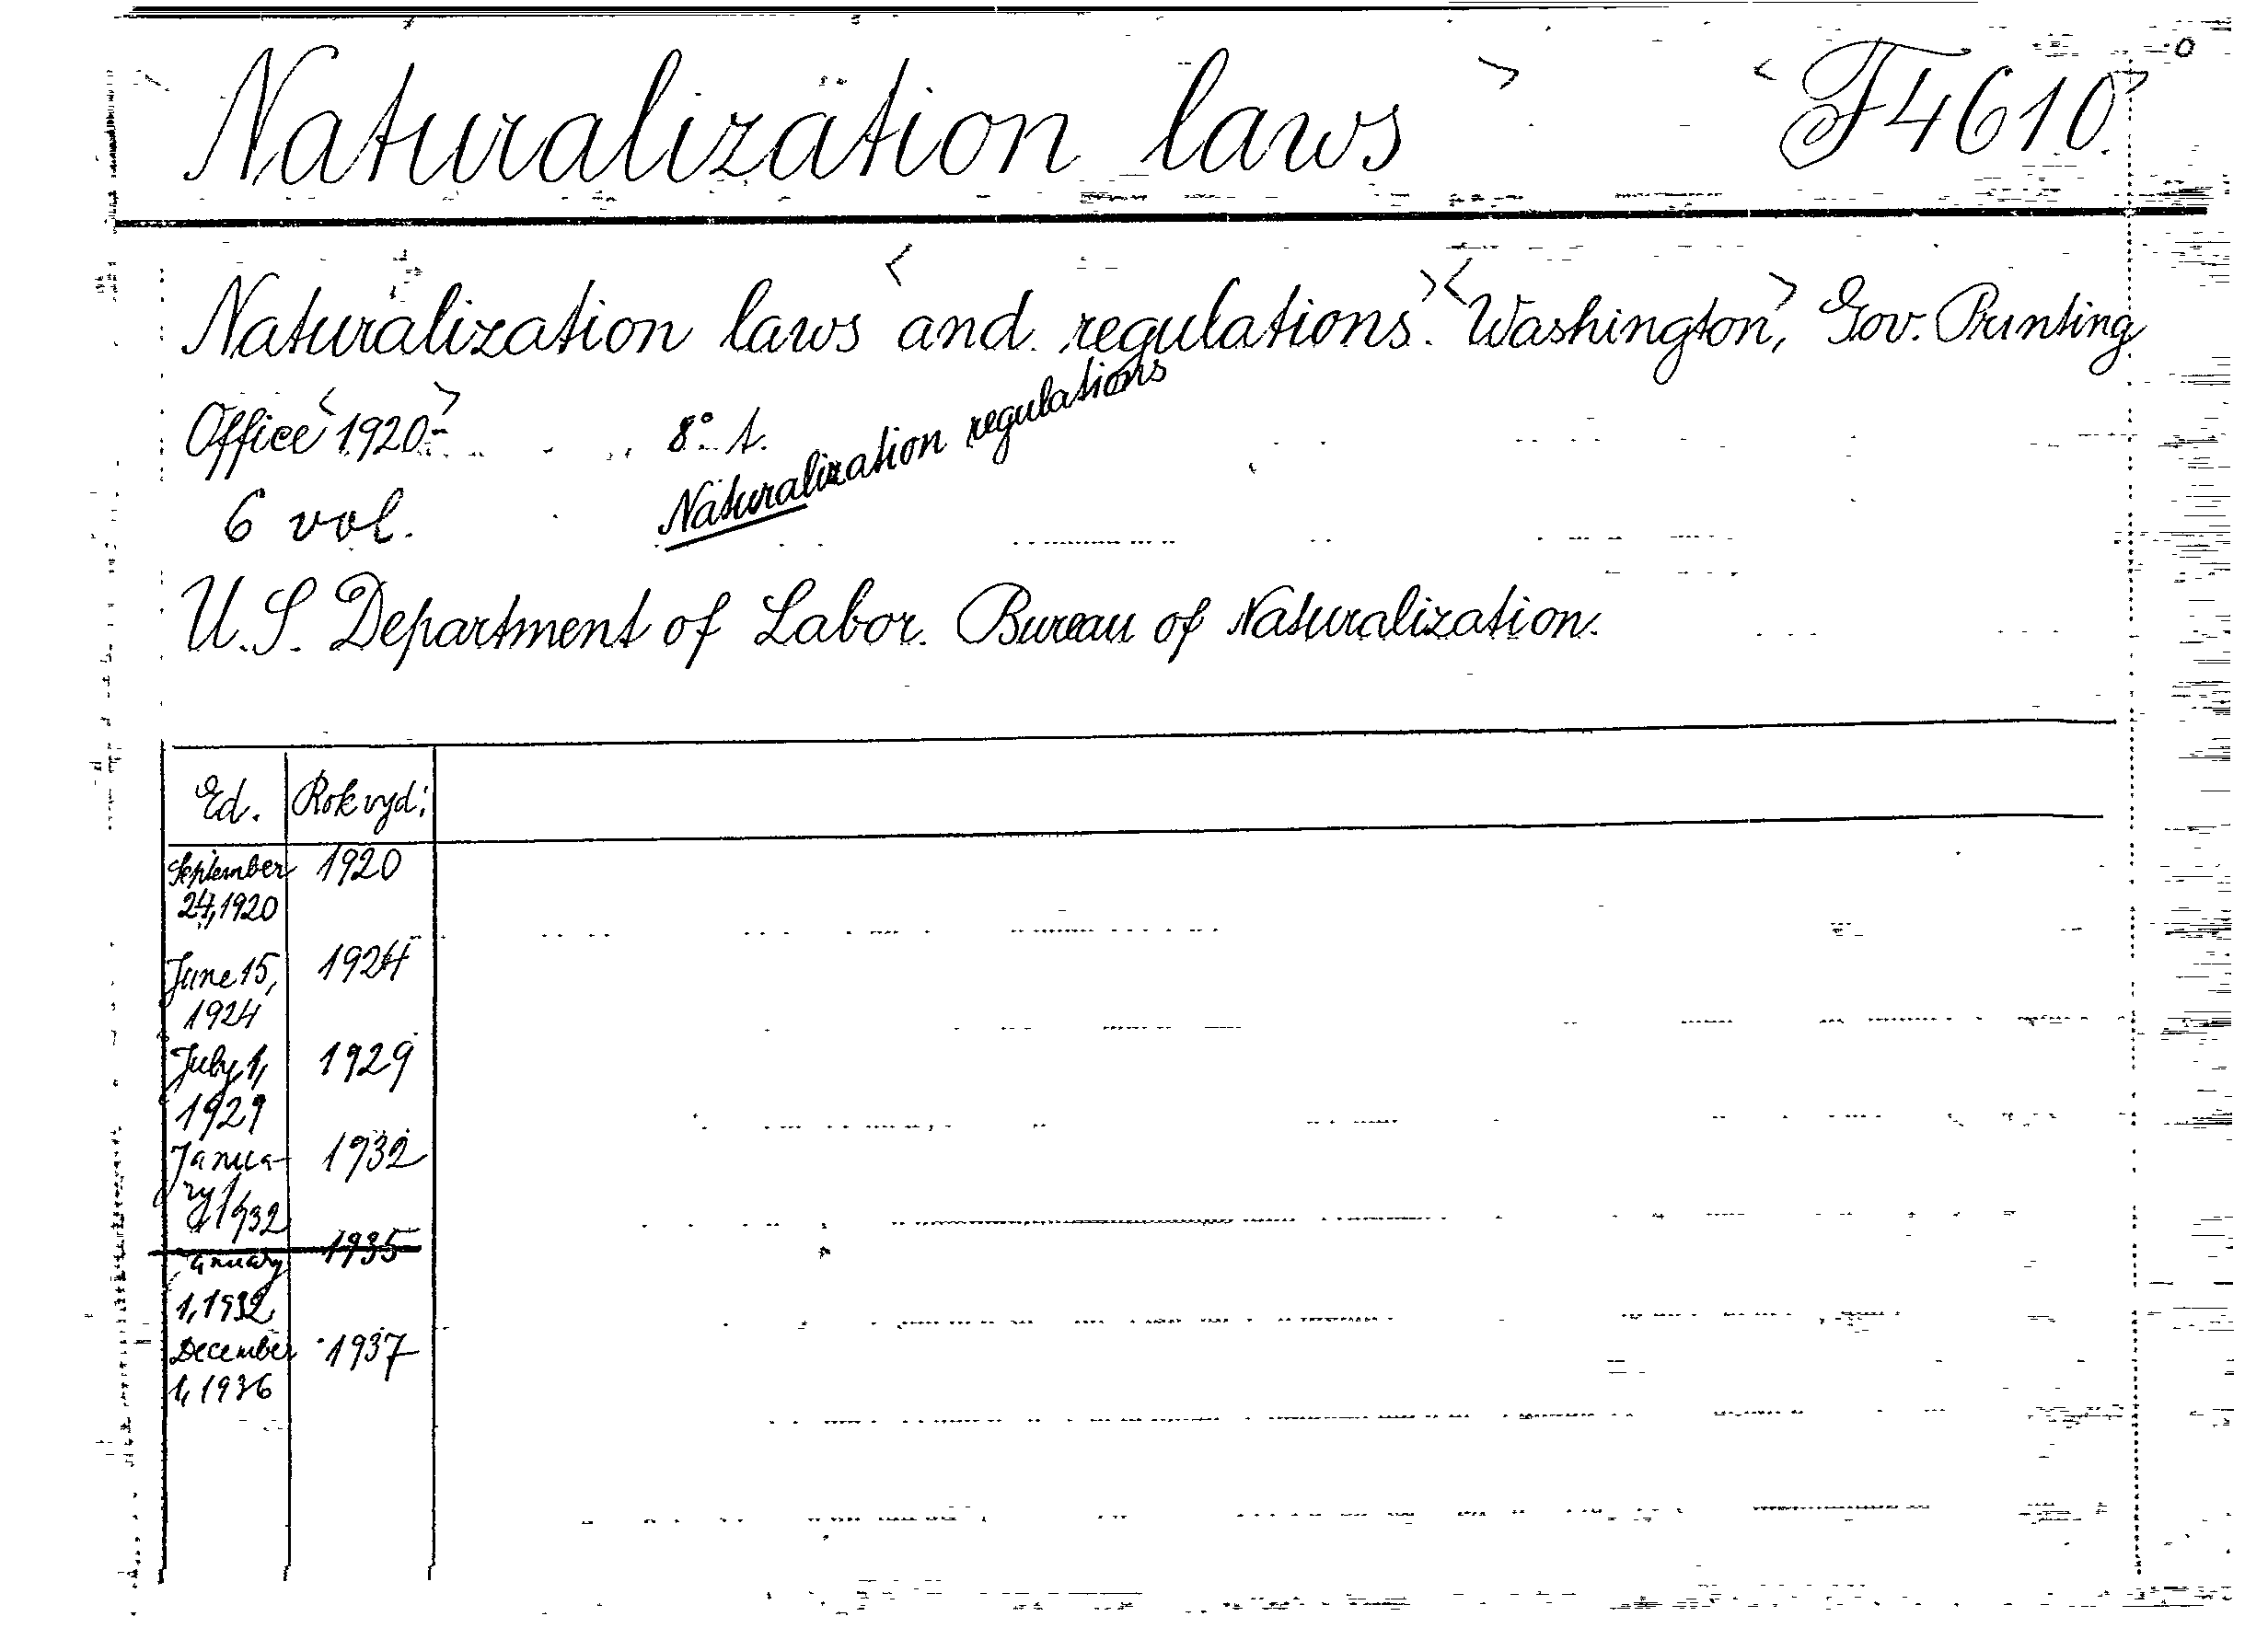 Naturalization laws F4610
Naturalization laws and regulations. Washington, Gov. Printing
Office 1920- 8° t.
Naturalization regulations
6 vol.
U.S. Department of Labor. Bureau of Naturalization.
Ed. Rok vyd:
September 1920
24, 1920
June 15, 1924
1924
July 1, 1929
1929
Janua- 1932
ry 1, 1932
January 1935
1, 1932
December 1937
1, 1936